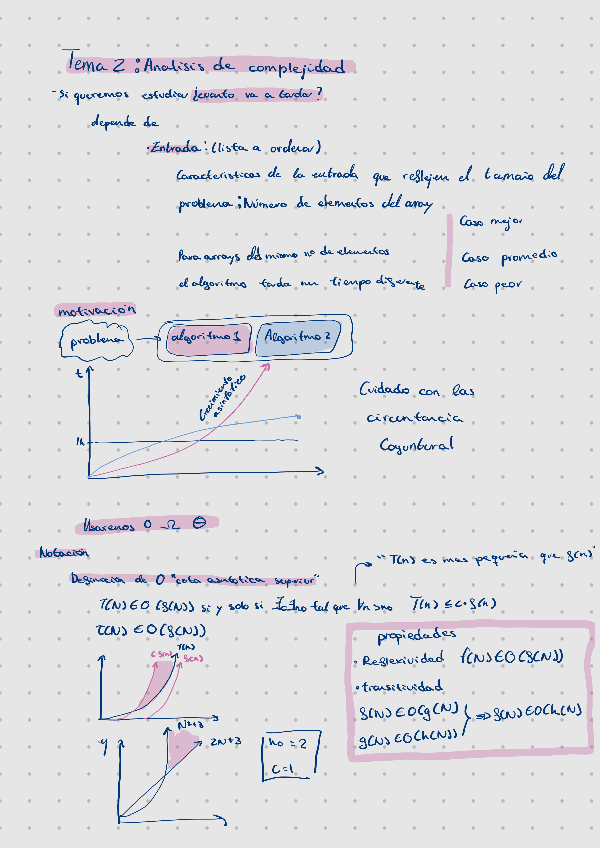 Tema 2: Analisis de complejidad
-Si queremos estudia ¿cuanto va a tarda?
depende de
·Entrada: (lista a ordenar)
Caracteristicas de la entrada que reflejen el tamaño del
problema: Número de elementos del array
Caso mejor
Para arrays del mismo no de elementos
Caso promedio
el algoritmo tarda un tiempo diferente
Caso peor
motivación
problema
algoritmo 1
Algoritmo 2
t
Crecimiento
asintótico
1h
Cuidado con las
circuntancia
Coyuntural
Usaremos O Ω Θ
Notación
"T(n) es mas pequeña que f(n)"
Definición de O "cota asintótica superior"
T(N) ∈ O (f(N)) si y solo si ∃c,no tal que ∀n≥no T(n) ≤ c·f(n)
T(N) ∈ O(f(N))
propiedades
c·f(n)
T(N)
f(n)
· Reflexividad f(N) ∈ O(f(N))
· transitividad
f(N) ∈ O(g(N)
g(N) ∈ O(h(N))
⇒ f(N) ∈ O(h(N)
y
N²+3
2N+3
no = 2
C=1